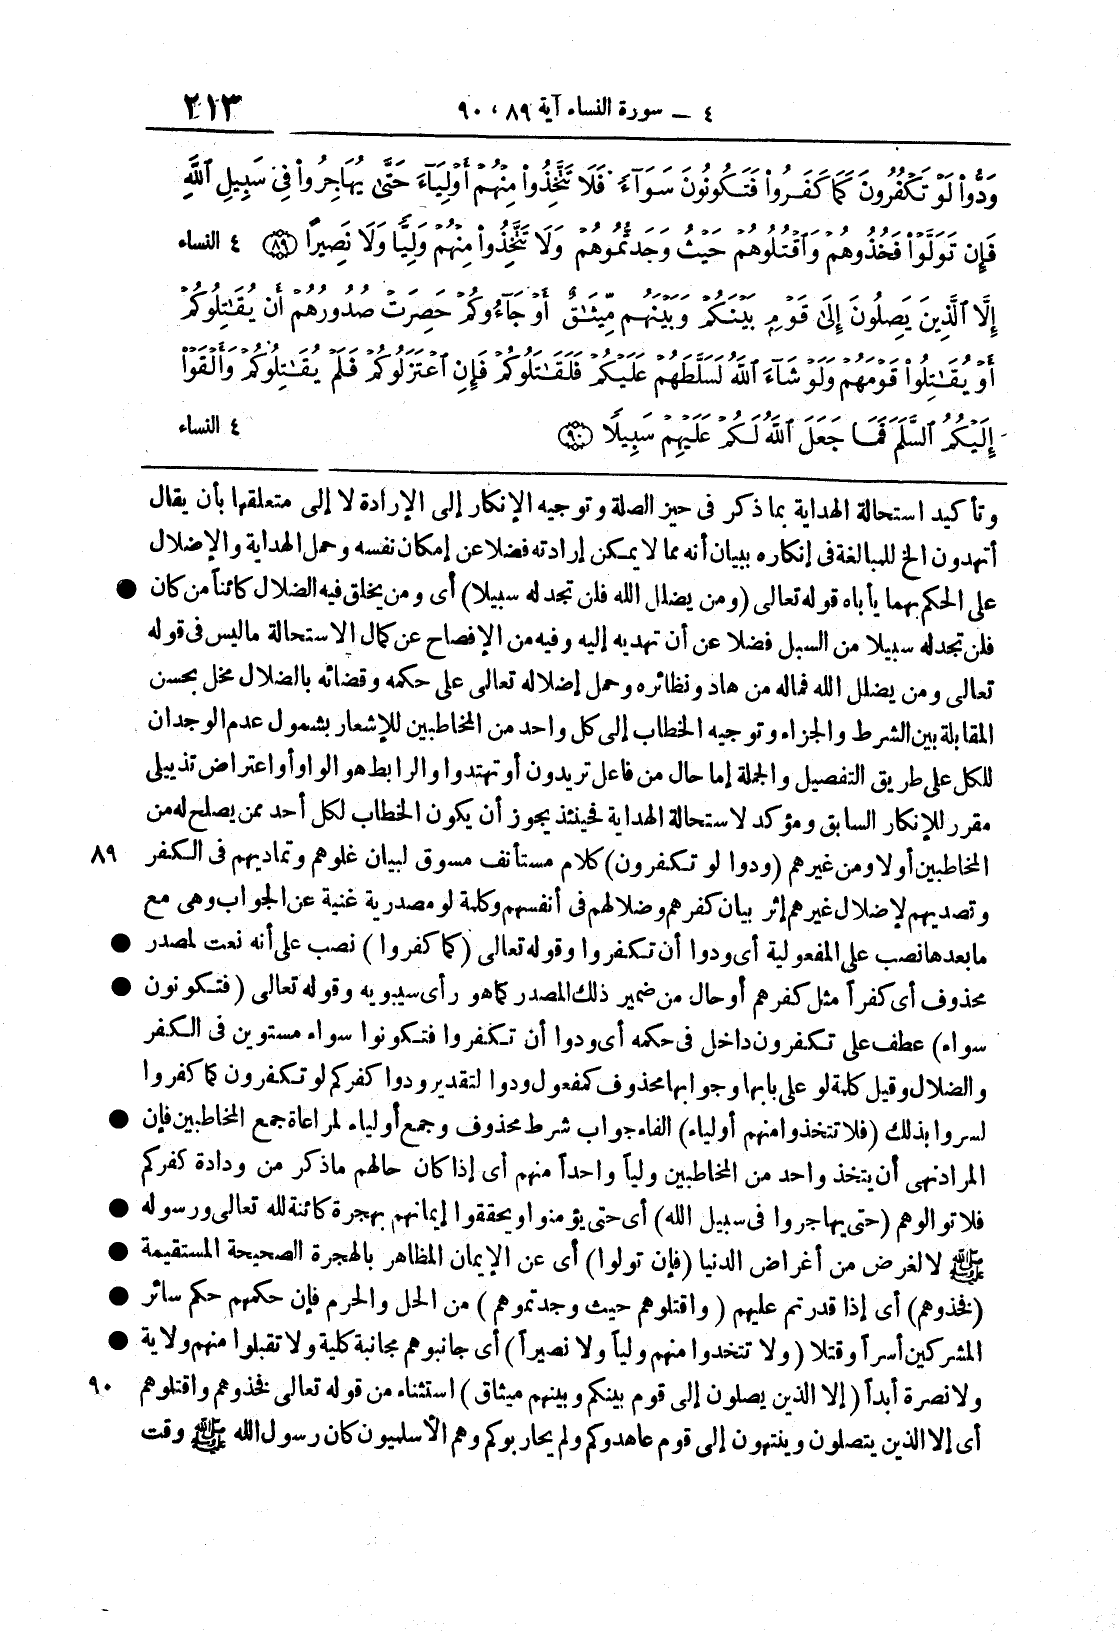 ٤ ــ سورة النساء آية ٨٩ ، ٩٠ ٢١٣
وَدُّواْ لَوْ تَكْفُرُونَ كَمَا كَفَرُواْ فَتَكُونُونَ سَوَآءً فَلَا تَتَّخِذُواْ مِنْهُمْ أَوْلِيَآءَ حَتَّىٰ يُهَاجِرُواْ فِى سَبِيلِ ٱللَّهِ
فَإِن تَوَلَّوْاْ فَخُذُوهُمْ وَٱقْتُلُوهُمْ حَيْثُ وَجَدتُّمُوهُمْ وَلَا تَتَّخِذُواْ مِنْهُمْ وَلِيًّا وَلَا نَصِيرًا ٨٩ ٤ النساء
إِلَّا ٱلَّذِينَ يَصِلُونَ إِلَىٰ قَوْمٍ بَيْنَكُمْ وَبَيْنَهُم مِّيثَٰقٌ أَوْ جَآءُوكُمْ حَصِرَتْ صُدُورُهُمْ أَن يُقَٰتِلُوكُمْ
أَوْ يُقَٰتِلُواْ قَوْمَهُمْ وَلَوْ شَآءَ ٱللَّهُ لَسَلَّطَهُمْ عَلَيْكُمْ فَلَقَٰتَلُوكُمْ فَإِنِ ٱعْتَزَلُوكُمْ فَلَمْ يُقَٰتِلُوكُمْ وَأَلْقَوْاْ
إِلَيْكُمُ ٱلسَّلَمَ فَمَا جَعَلَ ٱللَّهُ لَكُمْ عَلَيْهِمْ سَبِيلًا ٩٠ ٤ النساء
وتأكيد استحالة الهداية بما ذكر فى حيز الصلة وتوجيه الإنكار إلى الإرادة لا إلى متعلقها بأن يقال
أتهدون الخ للمبالغة فى إنكاره ببيان أنه مما لا يمكن إرادته فضلا عن إمكان نفسه وحمل الهداية والإضلال
على الحكم بهما يأباه قوله تعالى (ومن يضلل الله فلن تجد له سبيلا) أى ومن يخلق فيه الضلال كائناً من كان ●
فلن تجد له سبيلا من السبل فضلا عن أن تهديه إليه وفيه من الإفصاح عن كمال الاستحالة ما ليس فى قوله
تعالى ومن يضلل الله فماله من هاد ونظائره وحمل إضلاله تعالى على حكمه وقضائه بالضلال مخل بحسن
المقابلة بين الشرط والجزاء وتوجيه الخطاب إلى كل واحد من المخاطبين للإشعار بشمول عدم الوجدان
للكل على طريق التفصيل والجملة إما حال من فاعل تريدون أو تهتدوا والرابط هو الواو أو اعتراض تذييلى
مقرر للإنكار السابق ومؤكد لاستحالة الهداية فحينئذ يجوز أن يكون الخطاب لكل أحد ممن يصلح له من
المخاطبين أولا ومن غيرهم (ودوا لو تكفرون) كلام مستأنف مسوق لبيان غلوهم وتماديهم فى الكفر ٨٩
وتصديهم لإضلال غيرهم إثر بيان كفرهم وضلالهم فى أنفسهم وكلمة لو مصدرية غنية عن الجواب وهى مع
ما بعدها نصب على المفعولية أى ودوا أن تكفروا وقوله تعالى (كما كفروا) نصب على أنه نعت لمصدر ●
محذوف أى كفراً مثل كفرهم أو حال من ضمير ذلك المصدر كما هو رأى سيبويه وقوله تعالى (فتكونون ●
سواء) عطف على تكفرون داخل فى حكمه أى ودوا أن تكفروا فتكونوا سواء مستوين فى الكفر
والضلال وقيل كلمة لو على بابها وجوابها محذوف كمفعول ودوا لتقدير ودوا كفركم لو تكفرون كما كفروا
لسروا بذلك (فلا تتخذوا منهم أولياء) الفاء جواب شرط محذوف وجمع أولياء لمراعاة جمع المخاطبين فإن ●
المراد نهى أن يتخذ واحد من المخاطبين ولياً واحداً منهم أى إذا كان حالهم ما ذكر من ودادة كفركم
فلا توالوهم (حتى يهاجروا فى سبيل الله) أى حتى يؤمنوا ويحققوا إيمانهم بهجرة كائنة لله تعالى ورسوله ●
ﷺ لا لغرض من أغراض الدنيا (فإن تولوا) أى عن الإيمان المظاهر بالهجرة الصحيحة المستقيمة ●
(فخذوهم) أى إذا قدرتم عليهم (واقتلوهم حيث وجدتموهم) من الحل والحرم فإن حكمهم حكم سائر ●
المشركين أسراً وقتلا (ولا تتخدوا منهم ولياً ولا نصيراً) أى جانبوهم مجانبة كلية ولا تقبلوا منهم ولاية ●
ولا نصرة أبداً (إلا الذين يصلون إلى قوم بينكم وبينهم ميثاق) استثناء من قوله تعالى فخذوهم واقتلوهم ٩٠
أى إلا الذين يتصلون وينتهون إلى قوم عاهدوكم ولم يحاربوكم وهم الأسلميون كان رسول الله ﷺ وقت